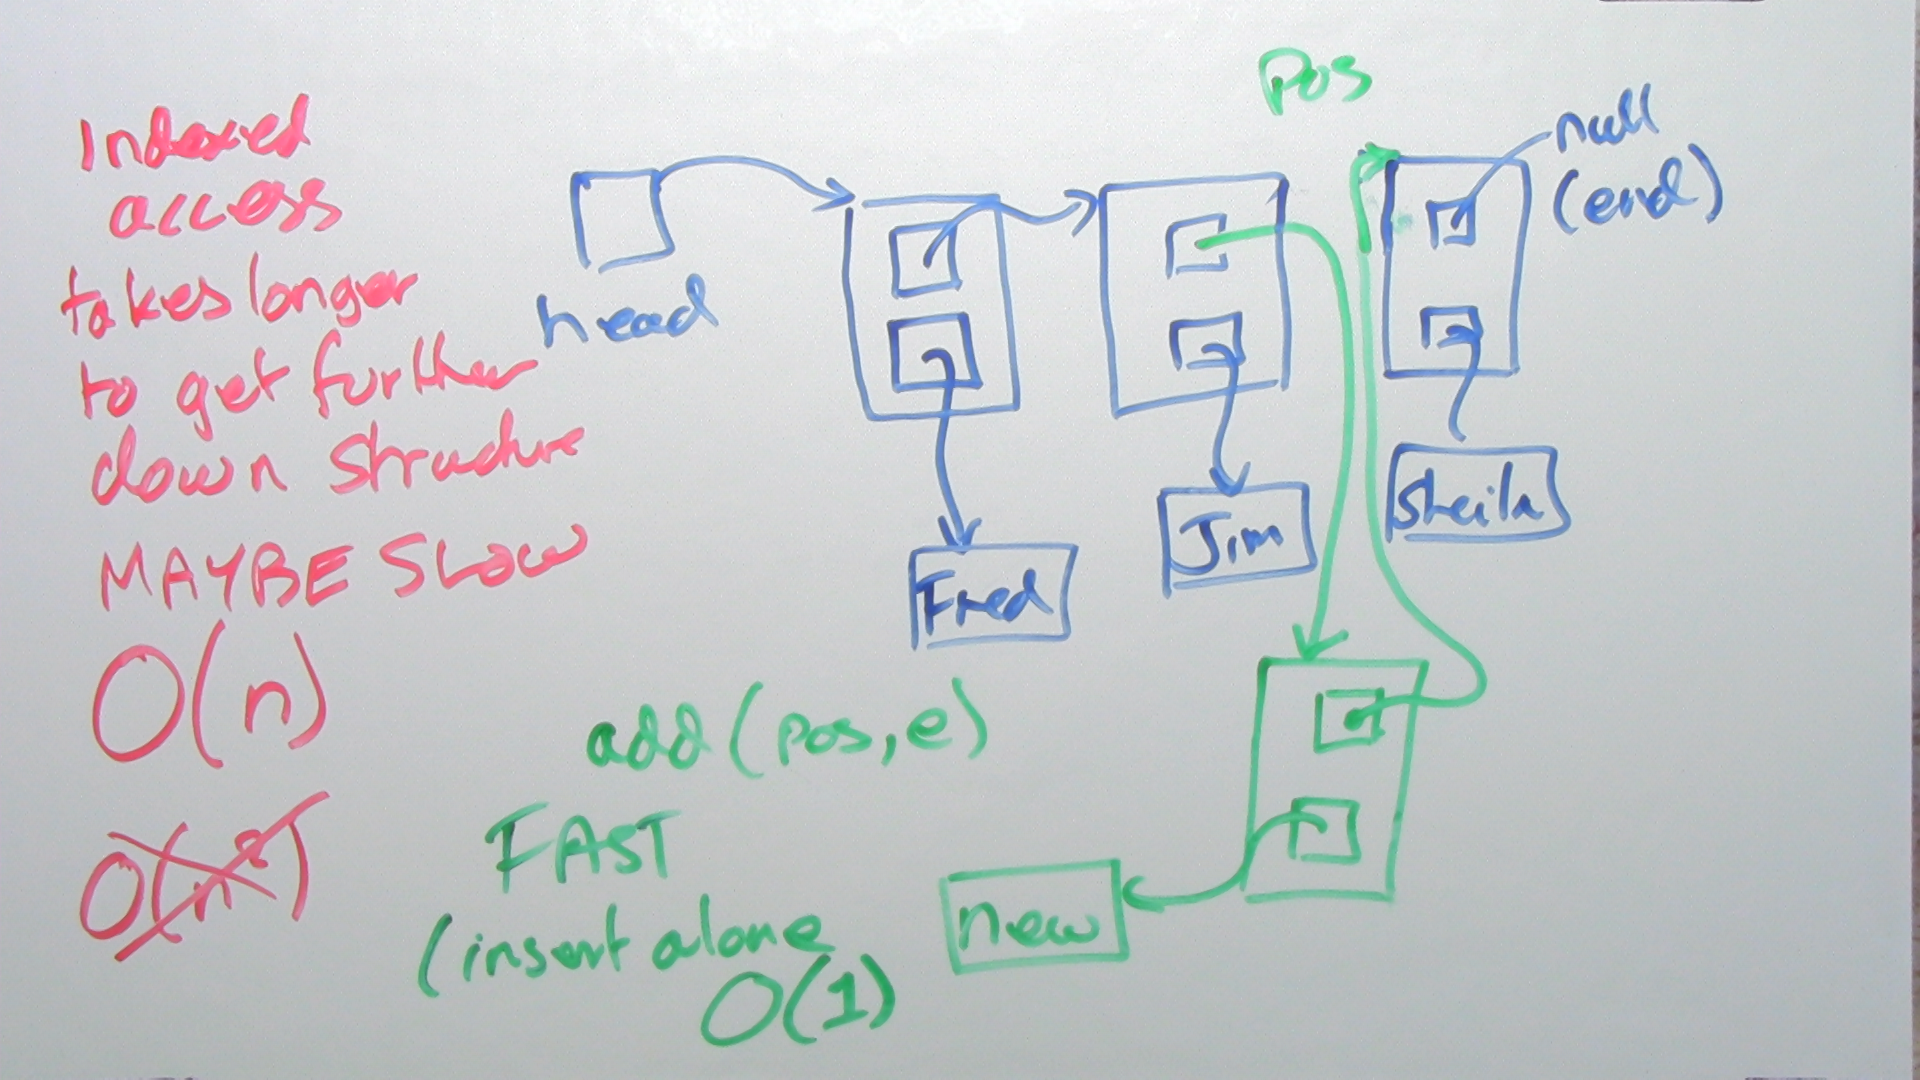 Indexed
access
takes longer
to get further
down structure
MAYBE SLOW
O(n)
O(n²)
head
Fred
Jim
Sheila
pos
null
(end)
add(pos,e)
FAST
(insert alone
O(1)
new